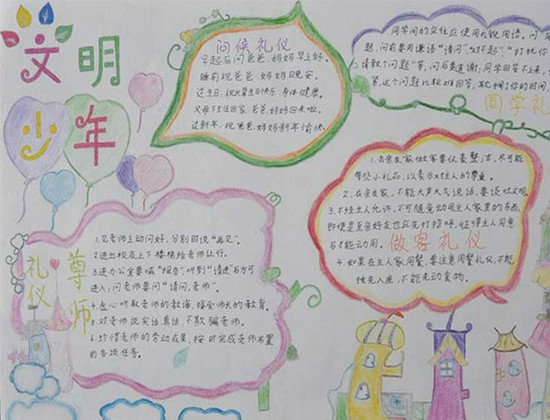 文明
少年
问候礼仪
早起后问爸爸、妈妈早上好。
睡前祝爸爸、妈妈晚安。
过生日,祝
快乐,身体健康。
父母下班回家,爸爸、妈妈回来啦。
过新年,祝爸爸、妈妈新年愉快。
同学间的交往应使用礼貌用语。问
题,问前要用谦语“请问”、“对不起”、
请教个问题”等,问后要道谢;同学回答不上来,
这个问题比较难回答,耽搁你的时间,
同学礼
尊师
礼仪
1.见老师主动问好,分别时说“再见”。
2.进出校及上下楼梯给老师让行。
3.进办公室要喊“报告”听到“请进”后方可
进入;问老师要问“请问,老师”。
4.虚心听取老师的教诲,接受师长的教育。
5.对老师说实话真话,不欺骗老师。
6.珍惜老师的劳动成果,按时完成老师布置
的各项任务。
做客礼仪
1.去亲友家做客要仪表整洁,尽可能
带些小礼品,以表示对主人的尊重。
2.在亲友家,不能大声大气说话,要谈吐文明
3.不经主人允许,不可随意动用主人家里的东西,
即使是至亲好友也应先打招呼,征得主人同意
后才能动用。
4.如果在主人家用餐,要注意用餐礼仪,不能
抢先入座,不能先动食物。